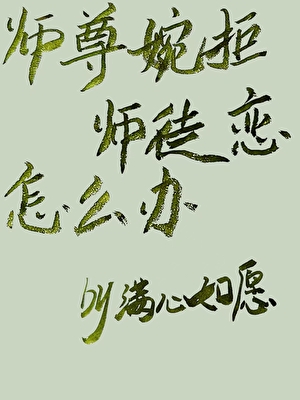 师尊婉拒
师徒恋
怎么办
by满心如愿